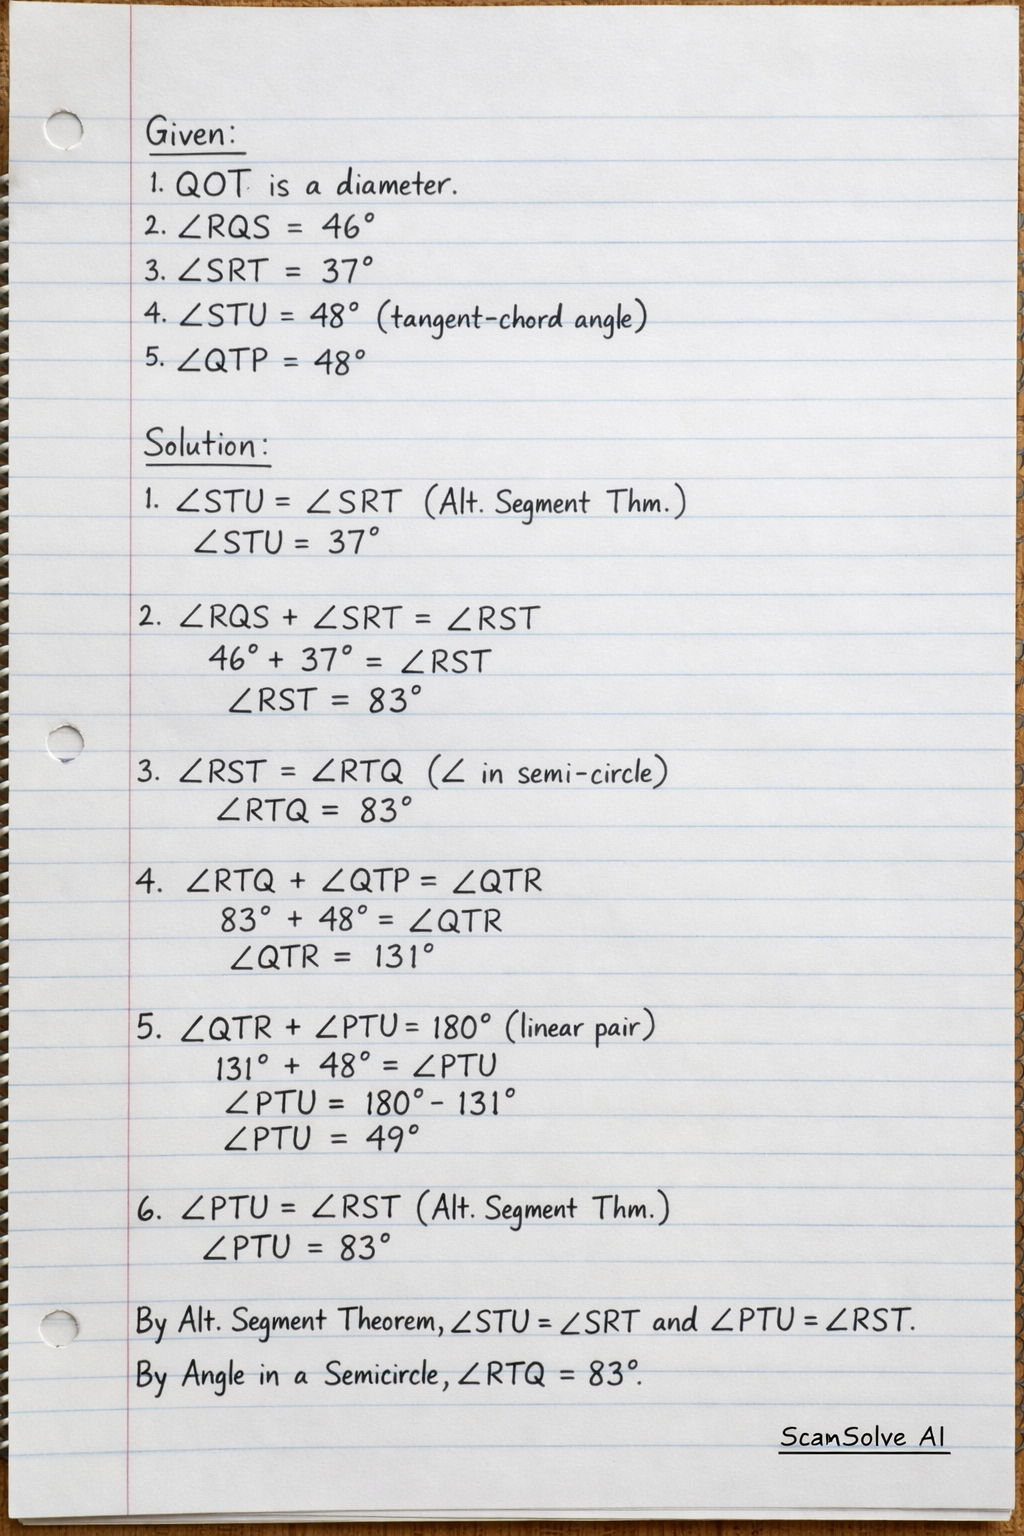 Given:
1. QOT is a diameter.
2. ∠RQS = 46°
3. ∠SRT = 37°
4. ∠STU = 48° (tangent-chord angle)
5. ∠QTP = 48°
Solution:
1. ∠STU = ∠SRT (Alt. Segment Thm.)
∠STU = 37°
2. ∠RQS + ∠SRT = ∠RST
46° + 37° = ∠RST
∠RST = 83°
3. ∠RST = ∠RTQ (∠ in semi-circle)
∠RTQ = 83°
4. ∠RTQ + ∠QTP = ∠QTR
83° + 48° = ∠QTR
∠QTR = 131°
5. ∠QTR + ∠PTU = 180° (linear pair)
131° + 48° = ∠PTU
∠PTU = 180° - 131°
∠PTU = 49°
6. ∠PTU = ∠RST (Alt. Segment Thm.)
∠PTU = 83°
By Alt. Segment Theorem, ∠STU = ∠SRT and ∠PTU = ∠RST.
By Angle in a Semicircle, ∠RTQ = 83°.
ScanSolve AI